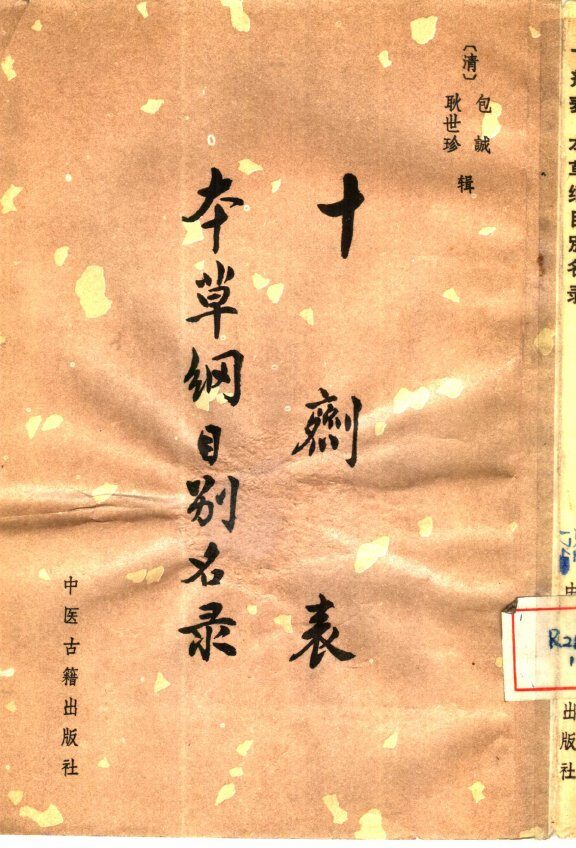 〔清〕包誠
耿世珍 辑
十劑表
本草纲目别名录
中医古籍出版社
本草纲目别名录
出版社